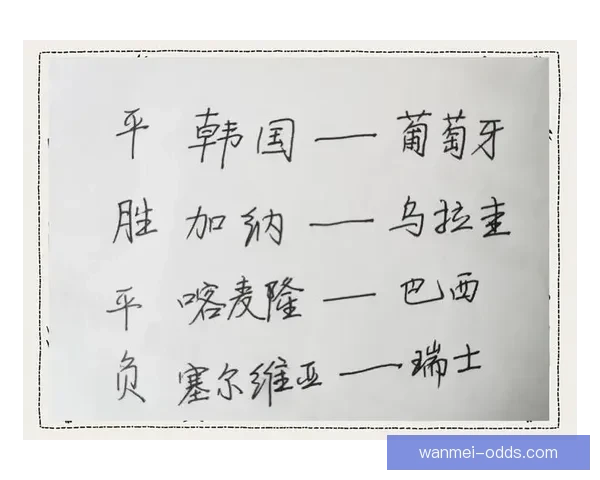 平 韩国 — 葡萄牙
胜 加纳 — 乌拉圭
平 喀麦隆 — 巴西
负 塞尔维亚 — 瑞士
wanmei-odds.com